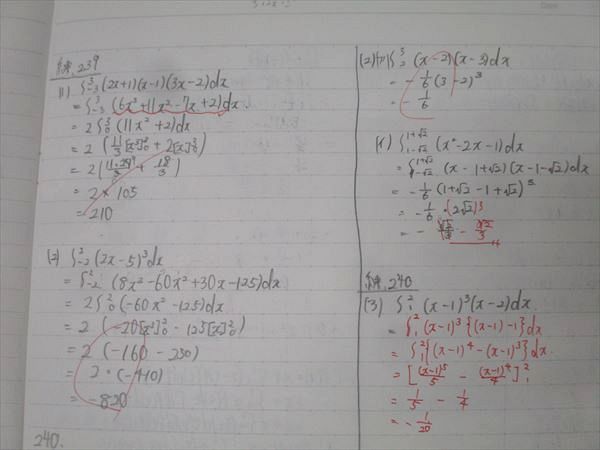 練.239
(1) ∫₋₃³ (2x+1)(x-1)(3x-2)dx
= ∫₋₃³ (6x³+11x²-7x+2)dx
= 2∫₀³ (11x²+2)dx
= 2 (11/3 [x³]₀³ + 2[x]₀³)
= 2 × 105
= 210
(2) ∫₋₂² (2x-5)³dx
= ∫₋₂² (8x³-60x²+30x-125)dx
= 2∫₀² (-60x²-125)dx
= 2 (-20[x³]₀² - 125[x]₀²)
= 2 (-160 - 250)
= 2・(-410)
= -820
240.
∫₂³ (x-2)(x-3)dx
= -1/6 (3-2)³
= -1/6
∫_{1-√2}^{1+√2} (x²-2x-1)dx
= ∫_{1-√2}^{1+√2} (x-1+√2)(x-1-√2)dx
= -1/6 (1+√2-1+√2)³
= -1/6 (2√2)³
練.240
(3) ∫₁² (x-1)³(x-2)dx
= ∫₁² (x-1)³{(x-1)-1}dx
= ∫₁² {(x-1)⁴-(x-1)³}dx
= [(x-1)⁵/5 - (x-1)⁴/4]₁²
= 1/5 - 1/4
= -1/20